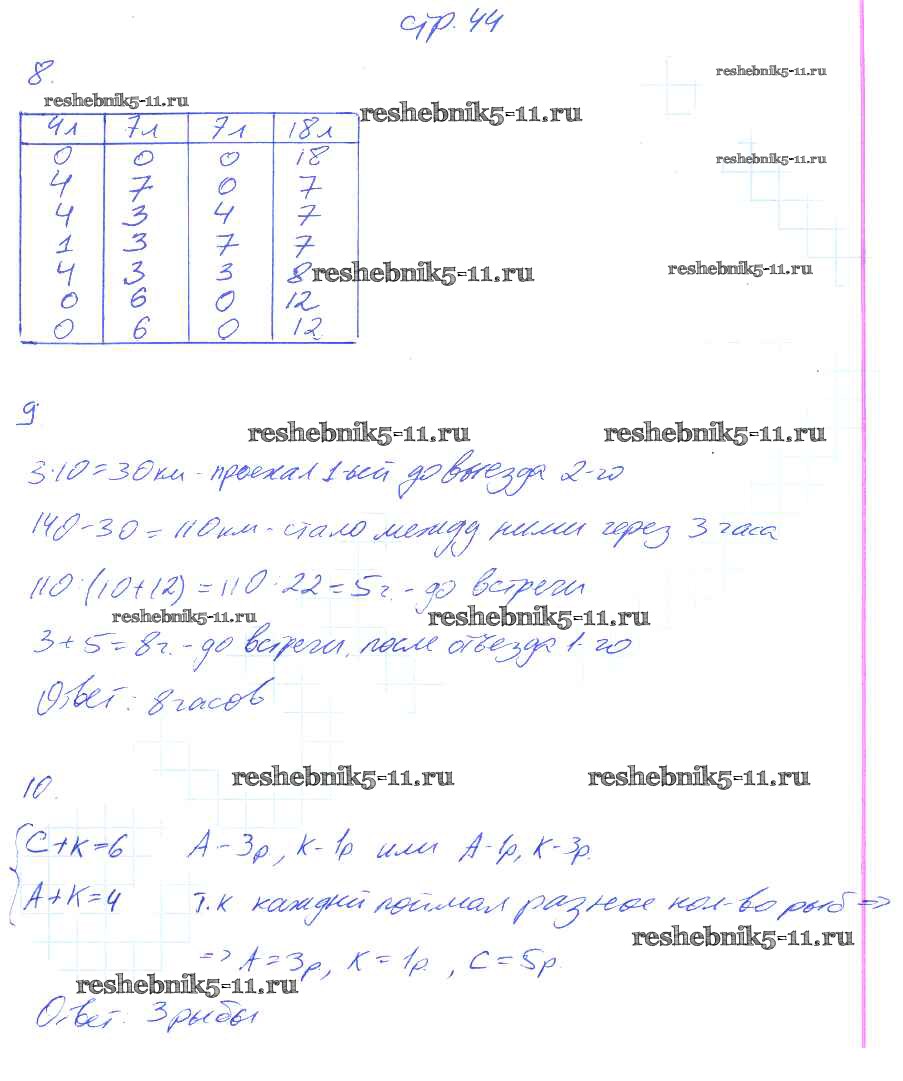 стр. 44
8.
reshebnik5-11.ru
reshebnik5-11.ru
reshebnik5-11.ru
4л 7л 7л 18л
0 0 0 18
reshebnik5-11.ru
4 7 0 7
4 3 4 7
1 3 7 7
4 3 3 8
reshebnik5-11.ru
reshebnik5-11.ru
0 6 0 12
0 6 0 12
9
reshebnik5-11.ru
reshebnik5-11.ru
3·10=30км - проехал 1-ый до выезда 2-го
140-30=110км - стало между ними через 3 часа
110:(10+12)=110:22=5ч. - до встречи
reshebnik5-11.ru
reshebnik5-11.ru
3+5=8ч. - до встречи, после отъезда 1-го
Ответ: 8 часов
10.
reshebnik5-11.ru
reshebnik5-11.ru
С+К=6 А-3р, К-1р или А-1р, К-3р.
А+К=4 т.к каждый поймал разное кол-во рыб =>
reshebnik5-11.ru
=> А=3р, К=1р., С=5р.
reshebnik5-11.ru
Ответ: 3 рыбы